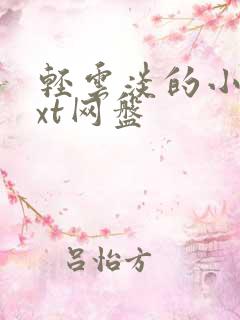 轻云淡的小
xt网盘
吕怡方